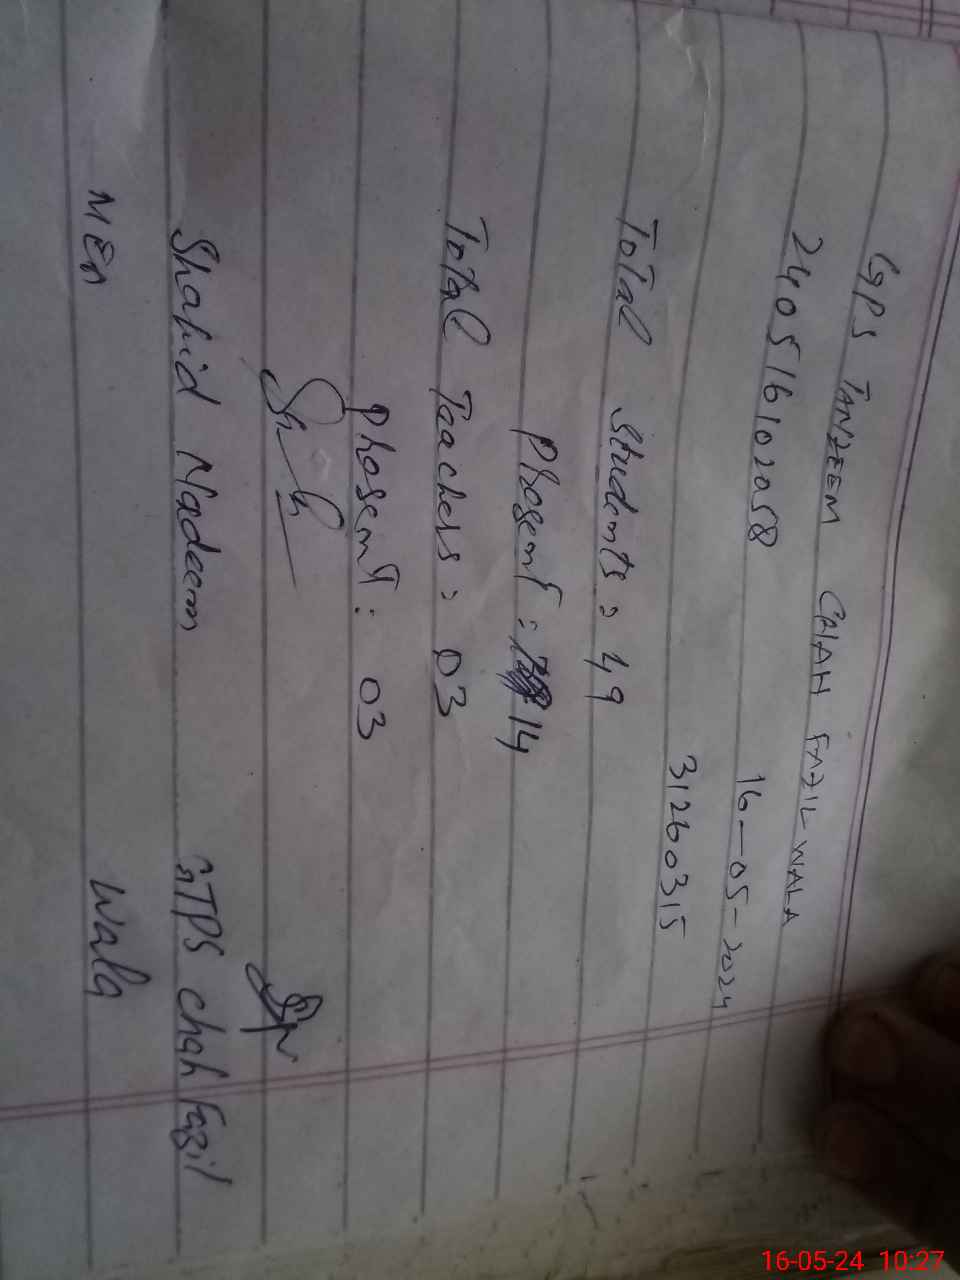 GPS TANZEEM CHAH FAZIL WALA
240516102058 16-05-2024
31260315
Total Students: 49
Present: 14
Total Teachers: 03
Present: 03
Shahid Nadeem GTPS Chah Fazil
MEA Wala
16-05-24 10:27